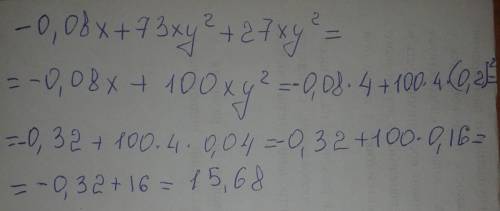 -0,08x+73xy²+27xy²=
=-0,08x+100xy²=-0,08·4+100·4·(0,2)²=
=-0,32+100·4·0,04=-0,32+100·0,16=
=-0,32+16=15,68